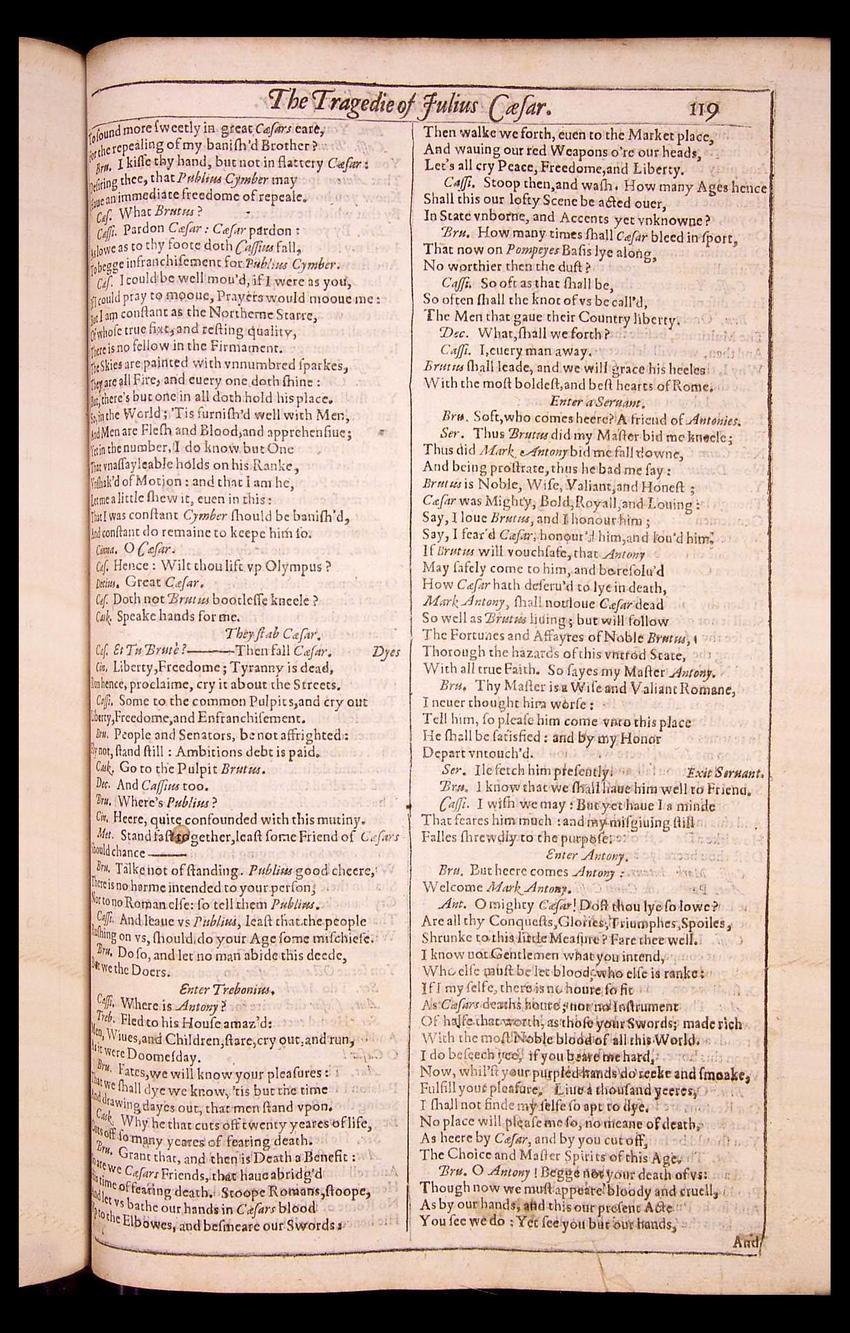 The Tragedie of Julius Cæsar. 119
To sound more sweetly in great Cæsars eare,
For the repealing of my banish'd Brother?
Bru. I kisse thy hand, but not in flattery Cæsar:
Desiring thee, that Publius Cymber may
Haue an immediate freedome of repeale.
Cæs. What Brutus?
Cassi. Pardon Cæsar: Cæsar pardon:
As lowe as to thy foote doth Cassius fall,
To begge infranchisement for Publius Cymber.
Cæs. I could be well mou'd, if I were as you,
If I could pray to mooue, Prayers would mooue me:
But I am constant as the Northerne Starre,
Of whose true fixt, and resting quality,
There is no fellow in the Firmament.
The Skies are painted with vnnumbred sparkes,
They are all Fire, and euery one doth shine:
But, there's but one in all doth hold his place.
So, in the World; 'Tis furnish'd well with Men,
And Men are Flesh and Blood, and apprehensiue;
Yet in the number, I do know but One
That vnassayleable holds on his Ranke,
Vnshak'd of Motion: and that I am he,
Let me a little shew it, euen in this:
That I was constant Cymber should be banish'd,
And constant do remaine to keepe him so.
Cinna. O Cæsar.
Cæs. Hence: Wilt thou lift vp Olympus?
Decius. Great Cæsar.
Cæs. Doth not Brutus bootlesse kneele?
Cask. Speake hands for me.
They stab Cæsar.
Cæs. Et Tu Brutè?———Then fall Cæsar. Dyes
Cin. Liberty, Freedome; Tyranny is dead,
Run hence, proclaime, cry it about the Streets.
Cassi. Some to the common Pulpits, and cry out
Liberty, Freedome, and Enfranchisement.
Bru. People and Senators, be not affrighted:
Fly not, stand still: Ambitions debt is paid.
Cask. Go to the Pulpit Brutus.
Dec. And Cassius too.
Bru. Where's Publius?
Cin. Heere, quite confounded with this mutiny.
Met. Stand fast together, least some Friend of Cæsars
Should chance———
Bru. Talke not of standing. Publius good cheere,
There is no harme intended to your person,
Nor to no Roman else: so tell them Publius.
Cassi. And leaue vs Publius, least that the people
Rushing on vs, should do your Age some mischiefe.
Bru. Do so, and let no man abide this deede,
But we the Doers.
Enter Trebonius.
Cassi. Where is Antony?
Treb. Fled to his House amaz'd:
Men, Wiues, and Children, stare, cry out, and run,
As it were Doomesday.
Bru. Fates, we will know your pleasures:
That we shall dye we know, 'tis but the time
And drawing dayes out, that men stand vpon.
Cask. Why he that cuts off twenty yeares of life,
Cuts off so many yeares of fearing death.
Bru. Grant that, and then is Death a Benefit:
So are we Cæsars Friends, that haue abridg'd
His time of fearing death. Stoope Romans, stoope,
And let vs bathe our hands in Cæsars blood
Vp to the Elbowes, and besmeare our Swords:
Then walke we forth, euen to the Market place,
And wauing our red Weapons o're our heads,
Let's all cry Peace, Freedome, and Liberty.
Cassi. Stoop then, and wash. How many Ages hence
Shall this our lofty Scene be acted ouer,
In State vnborne, and Accents yet vnknowne?
Bru. How many times shall Cæsar bleed in sport,
That now on Pompeyes Basis lye along,
No worthier then the dust?
Cassi. So oft as that shall be,
So often shall the knot of vs be call'd,
The Men that gaue their Country liberty.
Dec. What, shall we forth?
Cassi. I, euery man away.
Brutus shall leade, and we will grace his heeles
With the most boldest, and best hearts of Rome.
Enter a Seruant.
Bru. Soft, who comes heere? A friend of Antonies.
Ser. Thus Brutus did my Master bid me kneele;
Thus did Mark Antony bid me fall downe,
And being prostrate, thus he bad me say:
Brutus is Noble, Wise, Valiant, and Honest;
Cæsar was Mighty, Bold, Royall, and Louing:
Say, I loue Brutus, and I honour him;
Say, I fear'd Cæsar, honour'd him, and lou'd him.
If Brutus will vouchsafe, that Antony
May safely come to him, and be resolu'd
How Cæsar hath deseru'd to lye in death,
Mark Antony, shall not loue Cæsar dead
So well as Brutus liuing; but will follow
The Fortunes and Affayres of Noble Brutus,
Thorough the hazards of this vntrod State,
With all true Faith. So sayes my Master Antony.
Bru. Thy Master is a Wise and Valiant Romane,
I neuer thought him worse:
Tell him, so please him come vnto this place
He shall be satisfied: and by my Honor
Depart vntouch'd.
Ser. Ile fetch him presently. Exit Seruant.
Bru. I know that we shall haue him well to Friend.
Cassi. I wish we may: But yet haue I a minde
That feares him much: and my misgiuing still
Falles shrewdly to the purpose.
Enter Antony.
Bru. But heere comes Antony:
Welcome Mark Antony.
Ant. O mighty Cæsar! Dost thou lye so lowe?
Are all thy Conquests, Glories, Triumphes, Spoiles,
Shrunke to this little Measure? Fare thee well.
I know not Gentlemen what you intend,
Who else must be let blood, who else is ranke:
If I my selfe, there is no houre so fit
As Cæsars deaths houre; nor no Instrument
Of halfe that worth, as those your Swords; made rich
With the most Noble blood of all this World.
I do beseech yee, if you beare me hard,
Now, whil'st your purpled hands do reeke and smoake,
Fulfill your pleasure. Liue a thousand yeeres,
I shall not finde my selfe so apt to dye.
No place will please me so, no meane of death,
As heere by Cæsar, and by you cut off,
The Choice and Master Spirits of this Age.
Bru. O Antony! Begge not your death of vs:
Though now we must appeare bloody and cruell,
As by our hands, and this our present Acte
You see we do: Yet see you but our hands,
And